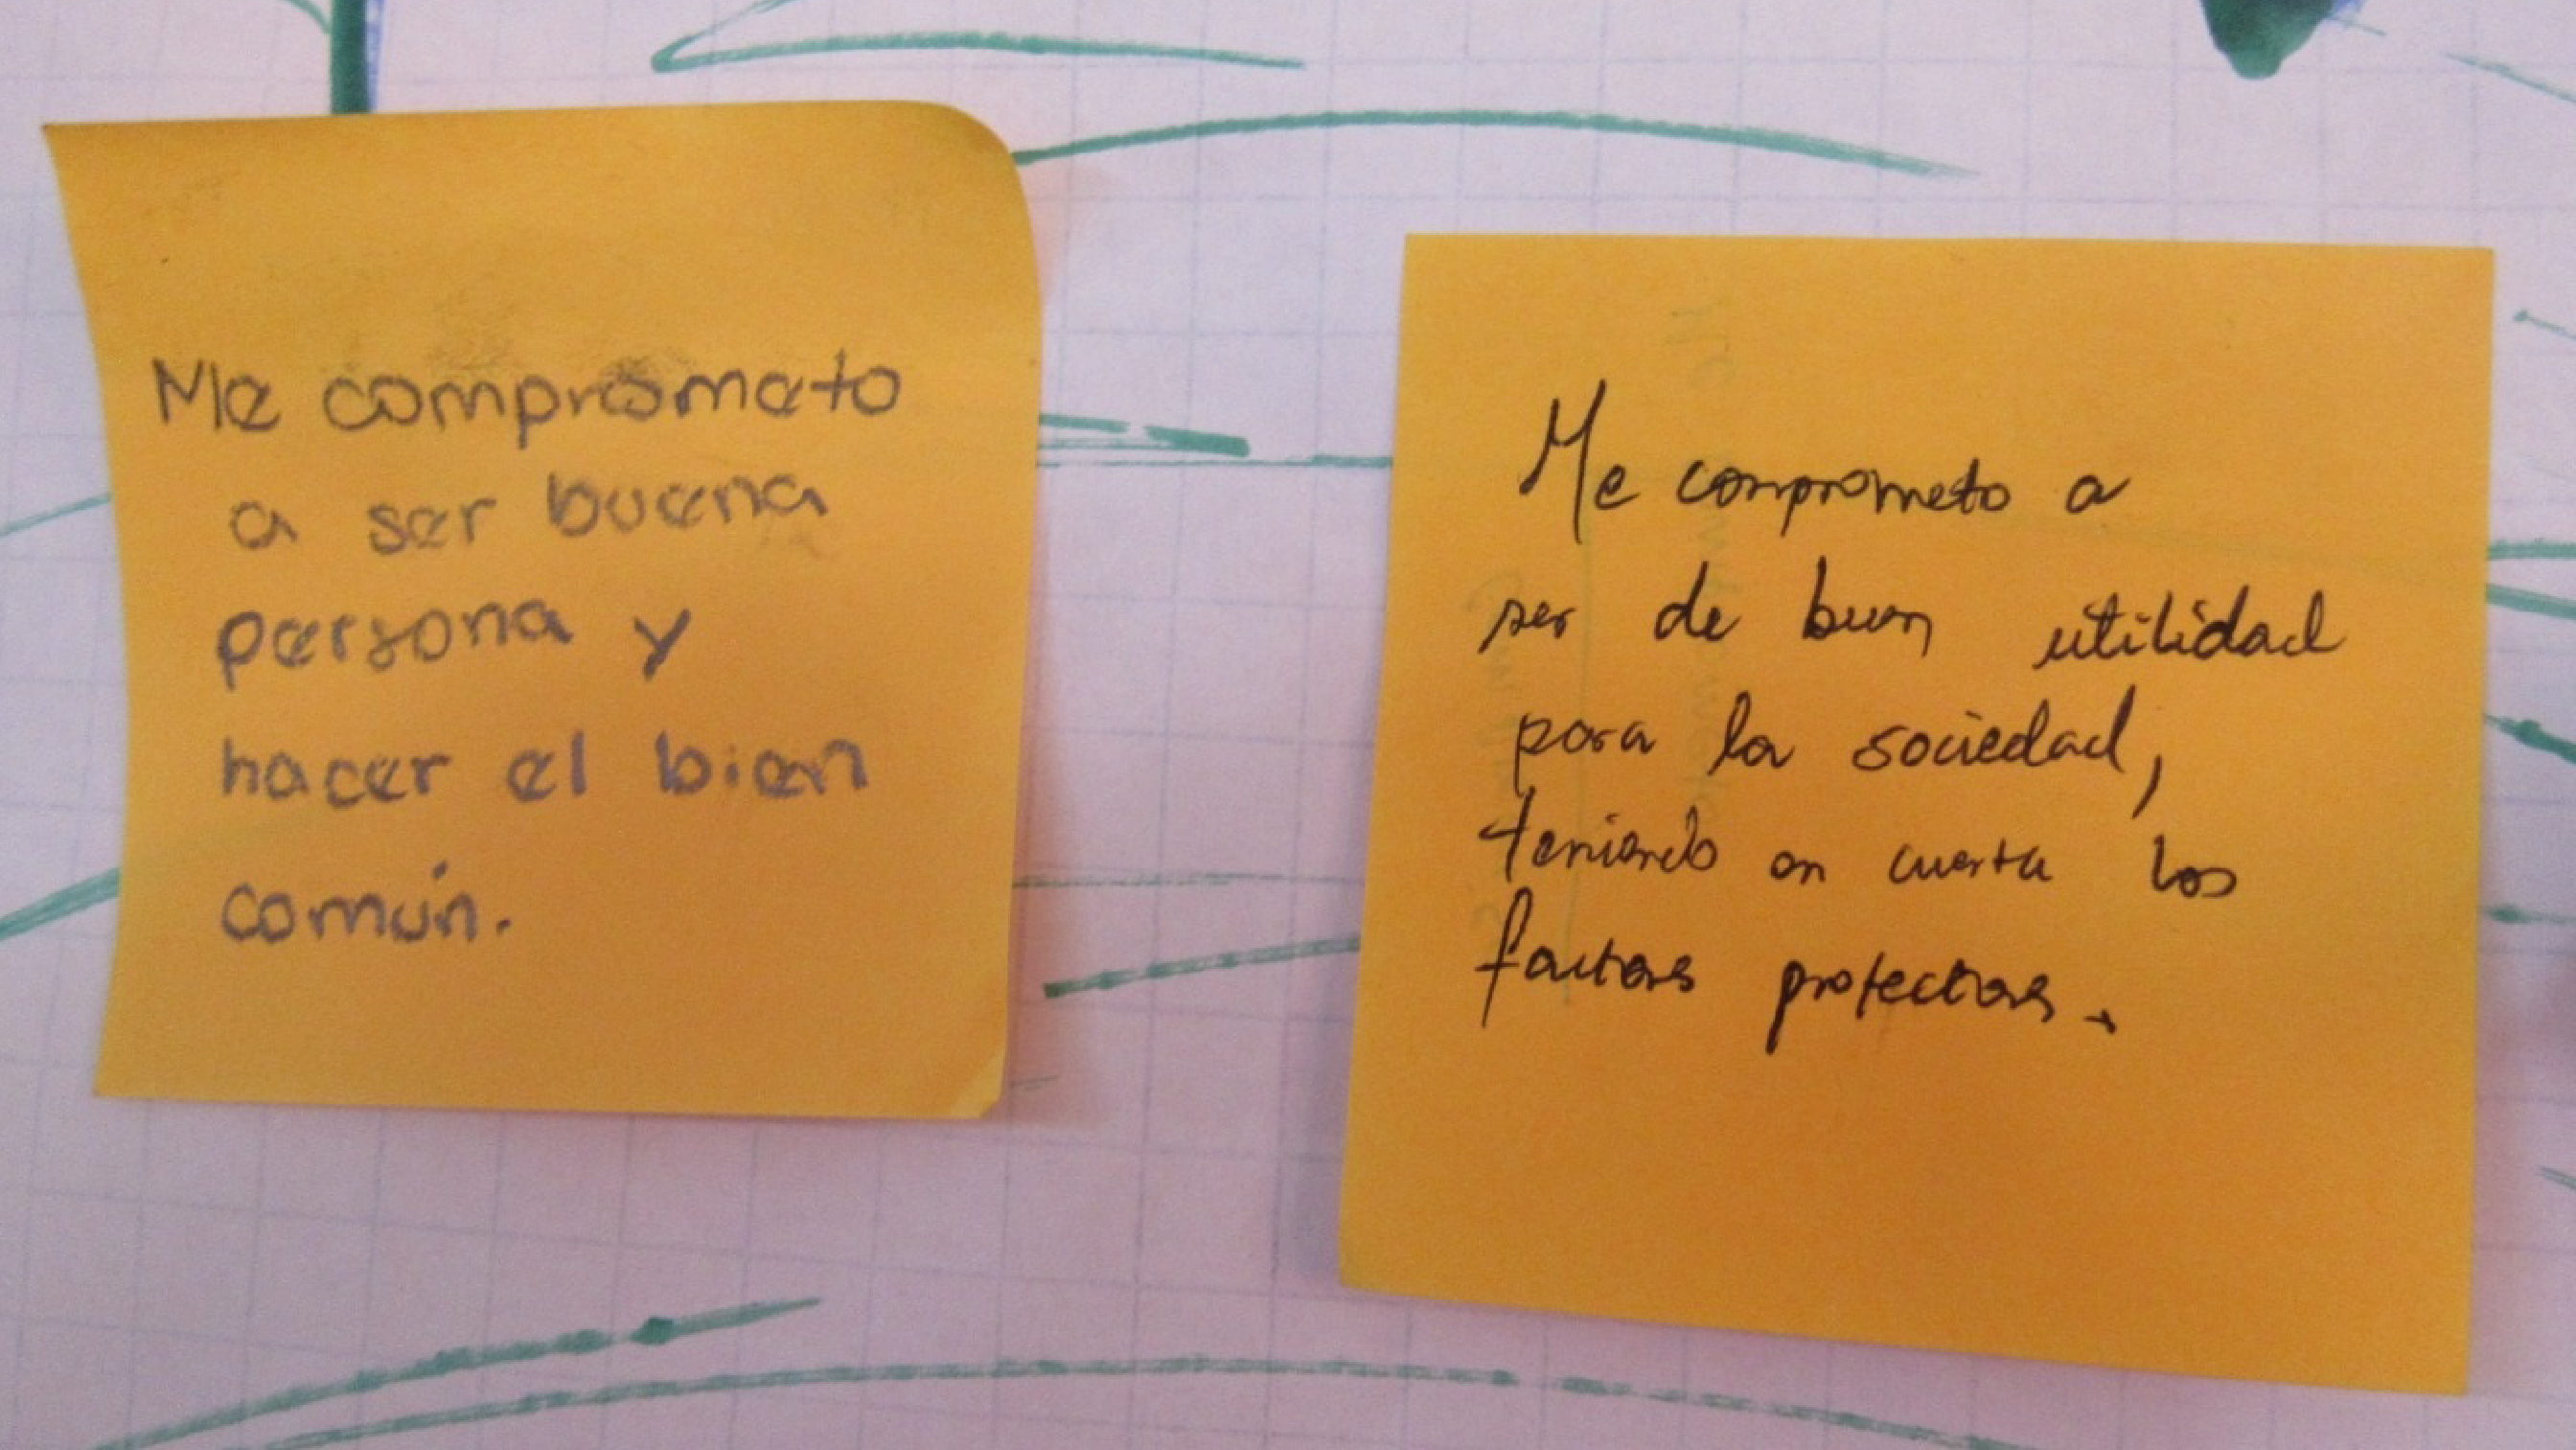 Me comprometo
a ser buena
persona y
hacer el bien
común.
Me comprometo a
ser de buen utilidad
para la sociedad,
teniendo en cuenta los
factores protectores.